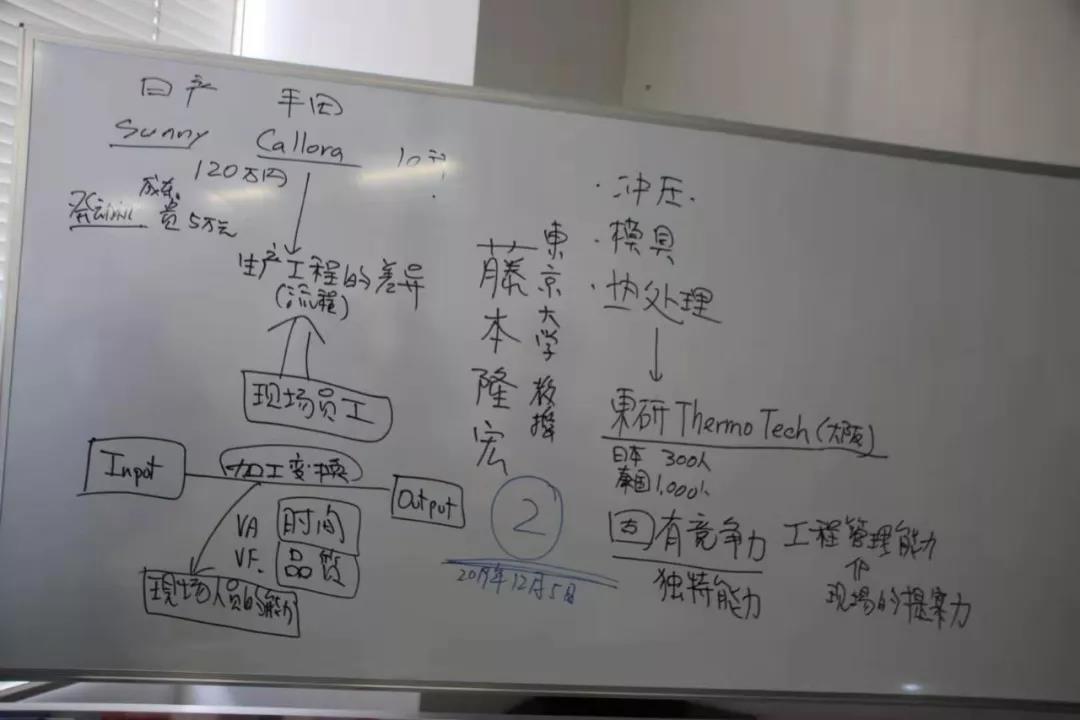 日产 丰田
Sunny Callora
120万円
成本
发动机 差 5万元
生产工程的差异
(流程)
现场员工
Input 加工变换 Output
VA 时间
VF. 品质
现场人员的能力
藤本隆宏
東京大学 教授
②
2019年12月5日
·冲压.
·模具
·热处理
東研 ThermoTech (大阪)
日本 300人
泰国 1,000人
固有竞争力
独特能力
工程管理能力
现場的提案力